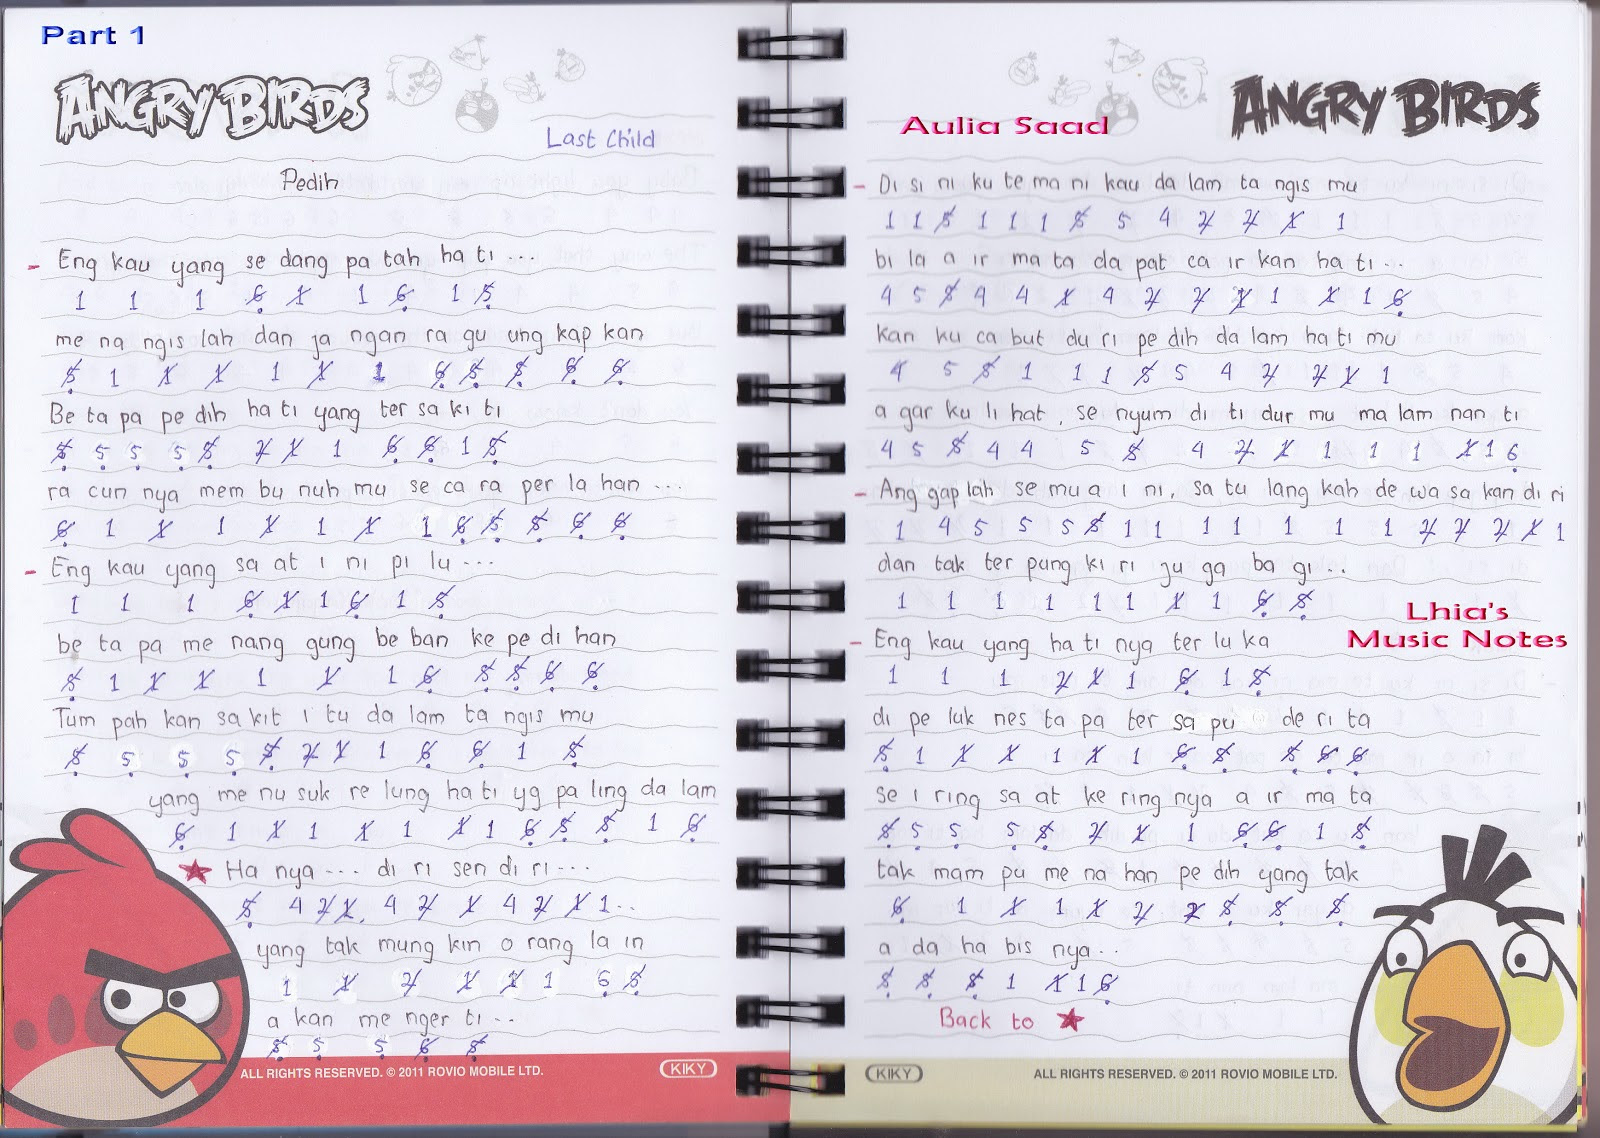 Part 1
ANGRY BIRDS
Last Child
Pedih
- Eng kau yang se dang pa tah ha ti ...
1 1 1 6 1 1 6 1 5
me na ngis lah dan ja ngan ra gu ung kap kan
5 1 1 1 1 1 1 6 5 5 6 6
Be ta pa pe dih ha ti yang ter sa ki ti
5 5 5 5 5 2 1 1 6 6 1 5
ra cun nya mem bu nuh mu se ca ra per la han ...
6 1 1 1 1 1 1 1 6 5 5 6 6
- Eng kau yang sa at i ni pi lu ...
1 1 1 6 1 1 6 1 5
be ta pa me nang gung be ban ke pe di han
5 1 1 1 1 1 1 6 5 5 6 6
Tum pah kan sa kit i tu da lam ta ngis mu
5 5 5 5 5 2 1 1 6 6 1 5
yang me nu suk re lung ha ti yg pa ling da lam
6 1 1 1 1 1 1 1 6 5 5 1 6
★ Ha nya ... di ri sen di ri ...
5 4 2 1, 4 2 1 4 2 1 1 ..
yang tak mung kin o rang la in
1 1 2 1 1 1 6 5
a kan me nger ti ..
5 5 5 6 5
ALL RIGHTS RESERVED. © 2011 ROVIO MOBILE LTD.
KIKY
Aulia Saad
ANGRY BIRDS
- Di si ni ku te ma ni kau da lam ta ngis mu
1 1 5 1 1 1 5 5 4 2 2 1 1
bi la a ir ma ta da pat ca ir kan ha ti ..
4 5 5 4 4 1 4 2 2 1 1 1 1 6
kan ku ca but du ri pe dih da lam ha ti mu
4 5 5 1 1 1 5 5 4 2 2 1 1
a gar ku li hat, se nyum di ti dur mu ma lam nan ti
4 5 5 4 4 5 5 4 2 1 1 1 1 1 1 6
- Ang gap lah se mu a i ni, sa tu lang kah de wa sa kan di ri
1 4 5 5 5 5 1 1 1 1 1 1 1 2 2 2 1 1
dan tak ter pung ki ri ju ga ba gi ..
1 1 1 1 1 1 1 1 6 5
Lhia's
Music Notes
- Eng kau yang ha ti nya ter lu ka
1 1 1 2 1 1 6 1 5
di pe luk nes ta pa ter sa pu de ri ta
5 1 1 1 1 1 1 6 5 5 6 6
se i ring sa at ke ring nya a ir ma ta
5 5 5 5 5 2 1 1 6 6 1 5
tak mam pu me na han pe dih yang tak
6 1 1 1 1 2 2 5 5 5
a da ha bis nya ..
5 5 5 1 1 1 6
Back to ★
KIKY
ALL RIGHTS RESERVED. © 2011 ROVIO MOBILE LTD.